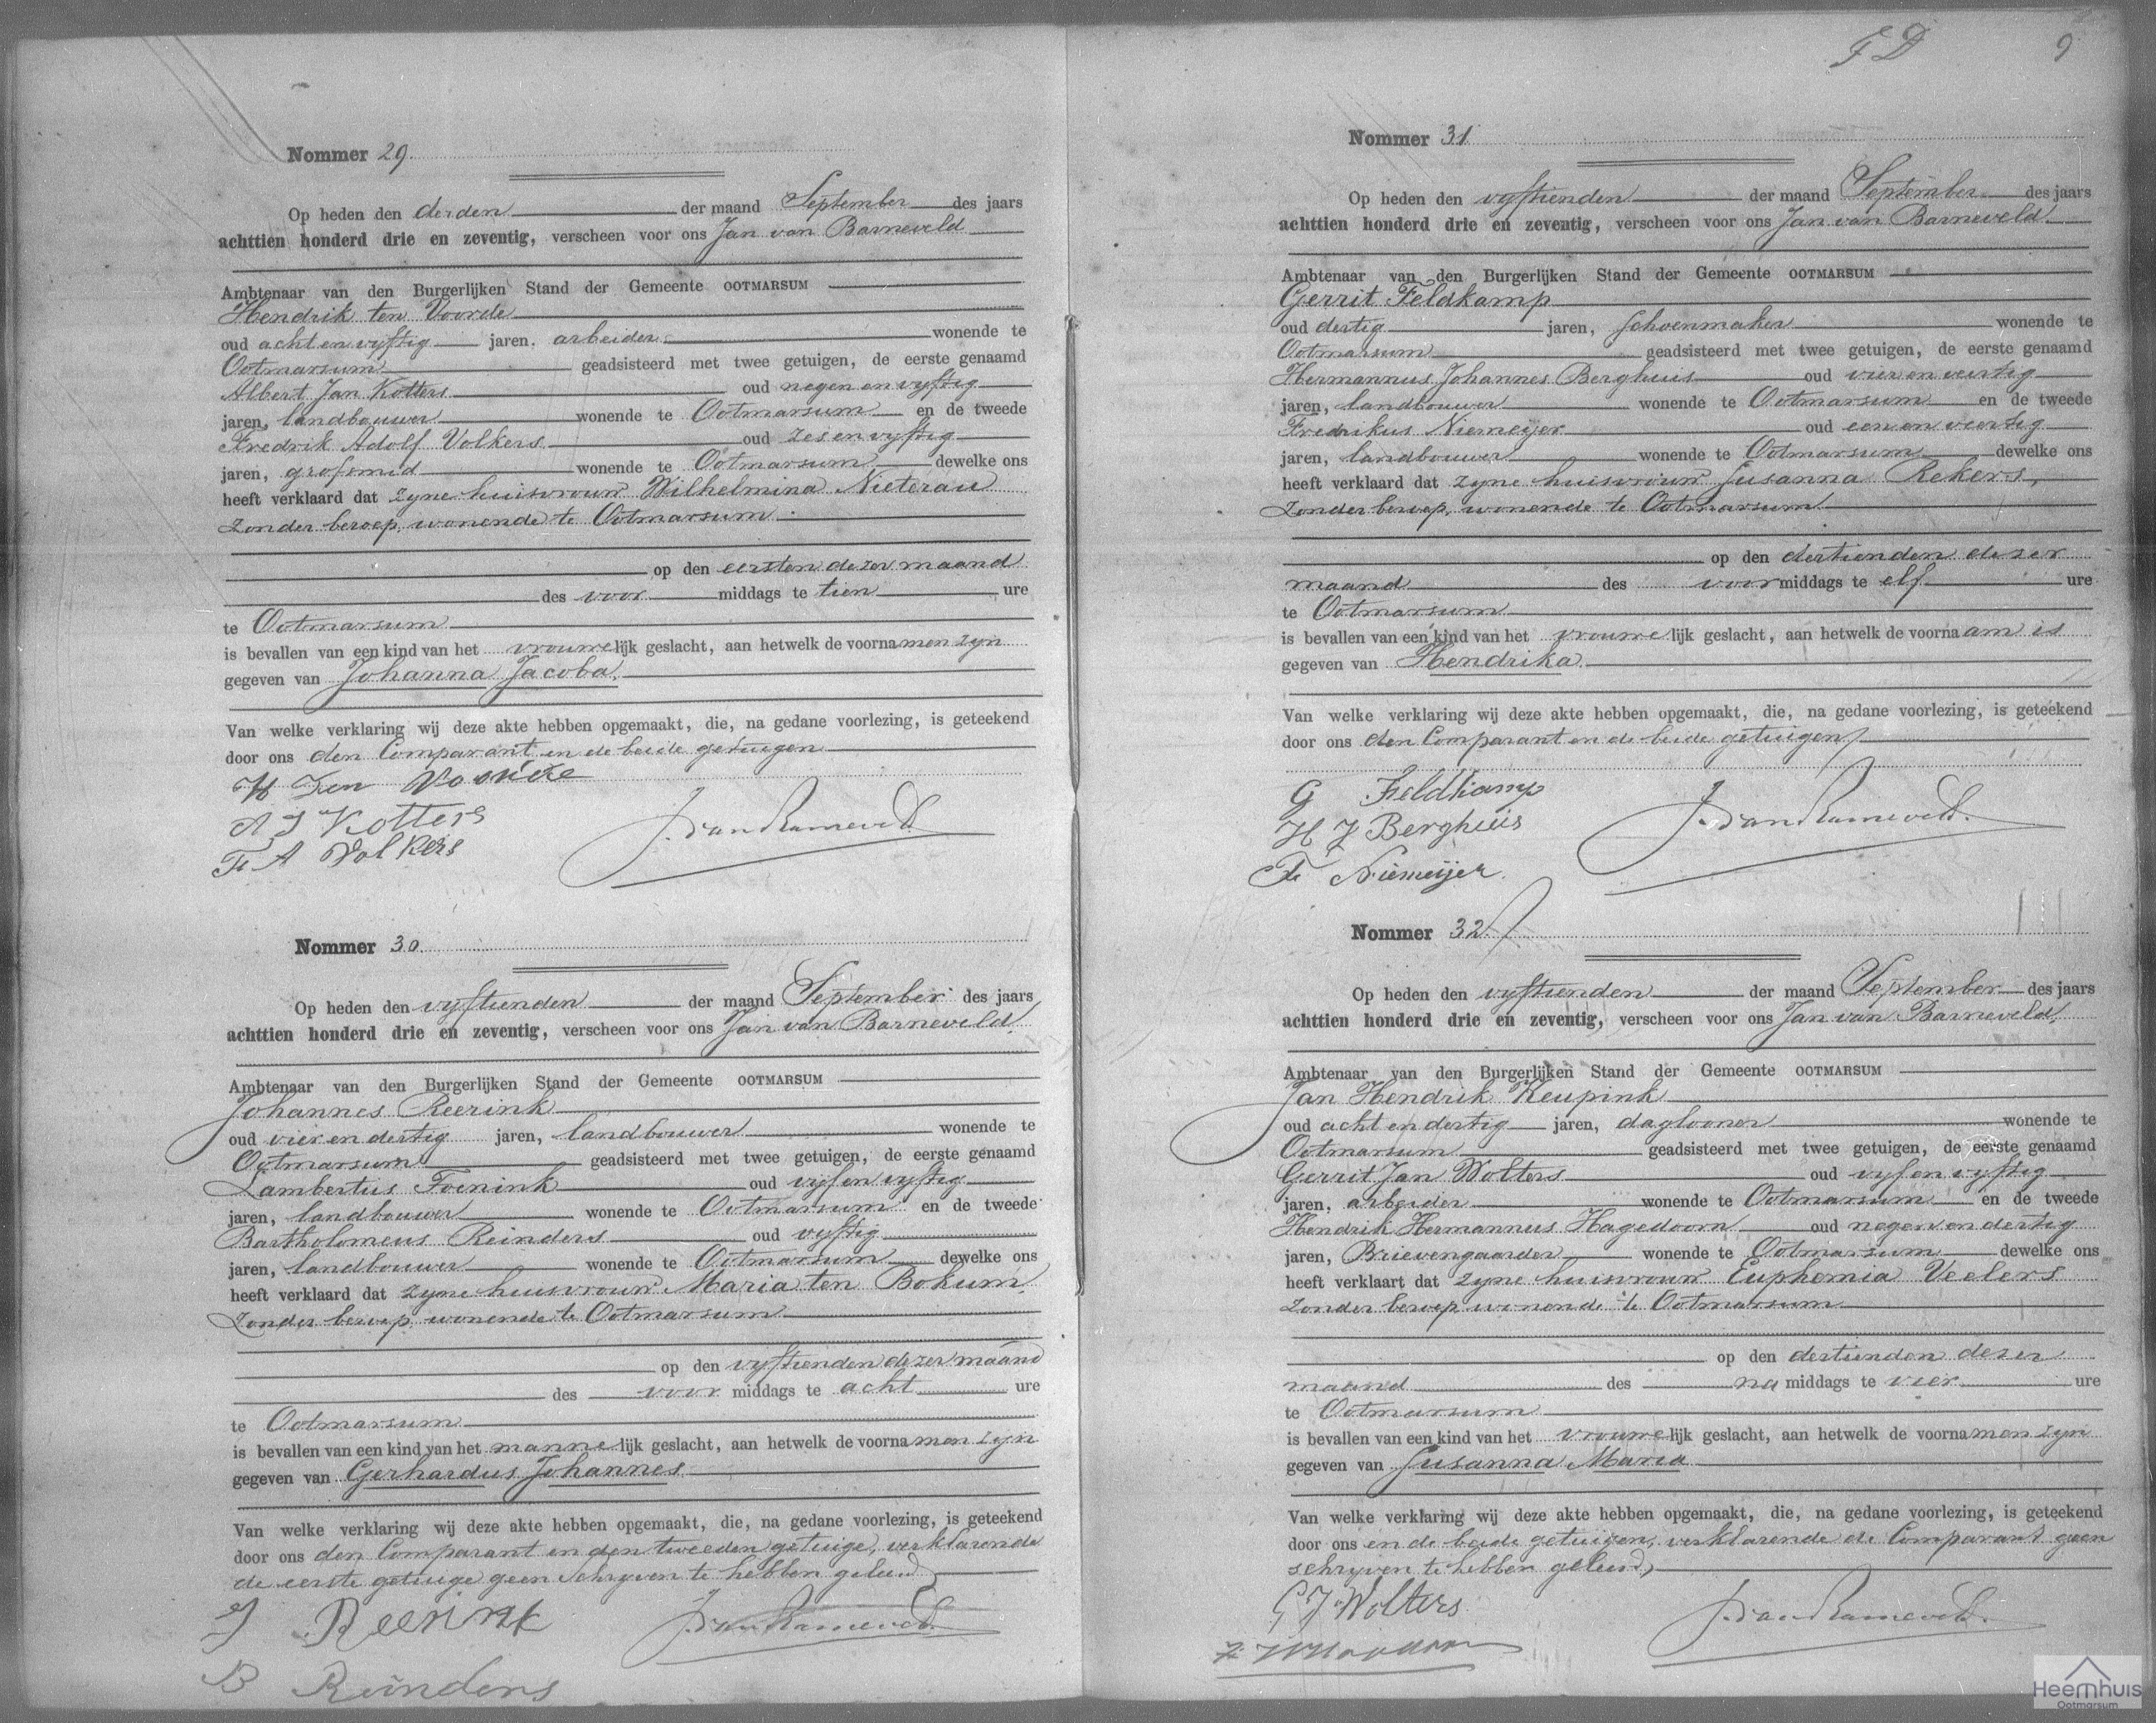 Nommer 29.
Op heden den derden der maand September des jaars
achttien honderd drie en zeventig, verscheen voor ons Jan van Barneveld
Ambtenaar van den Burgerlijken Stand der Gemeente OOTMARSUM
Hendrik ten Voorde
oud acht en vyftig jaren. arbeider wonende te
Ootmarsum geadsisteerd met twee getuigen, de eerste genaamd
Albert Jan Kotters oud negen en vyftig
jaren, landbouwer wonende te Ootmarsum en de tweede
Fredrik Adolf Volkers oud zes en vyftig
jaren, grofsmid wonende te Ootmarsum dewelke ons
heeft verklaard dat zyne huisvrouw Wilhelmina Nieterau
zonder beroep, wonende te Ootmarsum
op den eersten dezer maand
des voor middags te tien ure
te Ootmarsum
is bevallen van een kind van het vrouwelijk geslacht, aan hetwelk de voornamen zyn
gegeven van Johanna Jacoba.
Van welke verklaring wij deze akte hebben opgemaakt, die, na gedane voorlezing, is geteekend
door ons den Comparant en de beide getuigen
H Ten Voorde
A J Kotters
Fr A Volkers
J. van Barneveld
Nommer 30.
Op heden den vyftienden der maand September des jaars
achttien honderd drie en zeventig, verscheen voor ons Jan van Barneveld
Ambtenaar van den Burgerlijken Stand der Gemeente OOTMARSUM
Johannes Reerink
oud vier en dertig jaren, landbouwer wonende te
Ootmarsum geadsisteerd met twee getuigen, de eerste genaamd
Lambertus Foenink oud vyf en vyftig
jaren, landbouwer wonende te Ootmarsum en de tweede
Bartholomeus Reinders oud vyftig
jaren, landbouwer wonende te Ootmarsum dewelke ons
heeft verklaard dat zyne huisvrouw Maria ten Bokum,
zonder beroep, wonende te Ootmarsum
op den vyftienden dezer maand
des voor middags te acht ure
te Ootmarsum
is bevallen van een kind van het mannelijk geslacht, aan hetwelk de voornamen zyn
gegeven van Gerhardus Johannes
Van welke verklaring wij deze akte hebben opgemaakt, die, na gedane voorlezing, is geteekend
door ons den Comparant en den tweeden getuige, verklarende
de eerste getuige geen schryven te hebben geleerd
J Reerink
J. van Barneveld
B Reinders
F D 9
Nommer 31
Op heden den vyftienden der maand September des jaars
achttien honderd drie en zeventig, verscheen voor ons Jan van Barneveld
Ambtenaar van den Burgerlijken Stand der Gemeente OOTMARSUM
Gerrit Feldkamp
oud dertig jaren, schoenmaker wonende te
Ootmarsum geadsisteerd met twee getuigen, de eerste genaamd
Hermannus Johannes Berghuis oud vier en veertig
jaren, landbouwer wonende te Ootmarsum en de tweede
Fredrikus Niemeijer oud een en veertig
jaren, landbouwer wonende te Ootmarsum dewelke ons
heeft verklaard dat zyne huisvrouw Susanna Rekers,
zonder beroep, wonende te Ootmarsum
op den dertienden dezer
maand des voormiddags te elf ure
te Ootmarsum
is bevallen van een kind van het vrouwelijk geslacht, aan hetwelk de voornaam is
gegeven van Hendrika.
Van welke verklaring wij deze akte hebben opgemaakt, die, na gedane voorlezing, is geteekend
door ons den Comparant en de beide getuigen
G Feldkamp
H J Berghuis
Fr Niemeijer.
J. van Barneveld.
Nommer 32
Op heden den vyftienden der maand September des jaars
achttien honderd drie en zeventig, verscheen voor ons Jan van Barneveld,
Ambtenaar van den Burgerlijken Stand der Gemeente OOTMARSUM
Jan Hendrik Keupink
oud acht en dertig jaren, daglooner wonende te
Ootmarsum geadsisteerd met twee getuigen, de eerste genaamd
Gerrit Jan Wolters oud vyf en vyftig
jaren, arbeider wonende te Ootmarsum en de tweede
Hendrik Hermannus Hagedoorn oud negen en dertig
jaren, Brievengaarder wonende te Ootmarsum dewelke ons
heeft verklaart dat zyne huisvrouw Euphemia Veelers
zonder beroep wonende te Ootmarsum
op den dertienden dezer
maand des na middags te vier ure
te Ootmarsum
is bevallen van een kind van het vrouwelijk geslacht, aan hetwelk de voornamen zyn
gegeven van Susanna Maria
Van welke verklaring wij deze akte hebben opgemaakt, die, na gedane voorlezing, is geteekend
door ons en de beide getuigen, verklarende de Comparant geen
schryven te hebben geleerd,
G J Wolters
J. van Barneveld.
Heemhuis
Ootmarsum